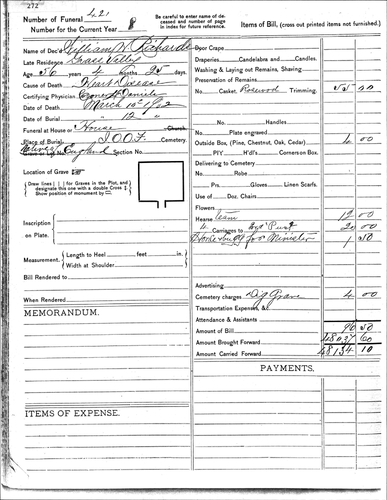 272
Number of Funeral 421
Number for the Current Year 8
Be careful to enter name of deceased and number of page in index for future reference.
Items of Bill, (cross out printed items not furnished.)
Name of Dec'd William N. Richards
Late Residence Grass Valley
Age 56 years 4 months 25 days.
Cause of Death Heart Disease
Certifying Physician
Date of Death March 10th
Date of Burial " 12 "
Funeral at House or House Church.
Place of Burial, I.O.O.F. Cemetery.
Native of England Section No.
Location of Grave
Draw lines ( ) for Graves in the Plot, and designate this one with a double Cross
Show position of monument by
Inscription on Plate.
Measurement. Length to Heel feet in.
Width at Shoulder
Bill Rendered to
When Rendered
MEMORANDUM.
ITEMS OF EXPENSE.
Door Crape
Draperies. Candelabra and Candles.
Washing & Laying out Remains, Shaving
Preservation of Remains.
No. Casket, Rosewood Trimming. 55 00
No. Handles
Plate engraved
Outside Box, (Pine, Chestnut, Oak, Cedar) 4 00
P'l'y H'd'l's Corners on Box.
Delivering to Cemetery
No. Robe
Prs. Gloves Linen Scarfs.
Use of Doz. Chairs
Flowers
Hearse team 12 00
4 Carriages to 20 00
Horse & buggy for Minister 1 50
Advertising
Cemetery charges Dig Grave 4 00
Transportation Expenses, &c.
Attendance & Assistants
Amount of Bill 96 50
Amount Brought Forward 48037 60
Amount Carried Forward 48134 10
PAYMENTS.